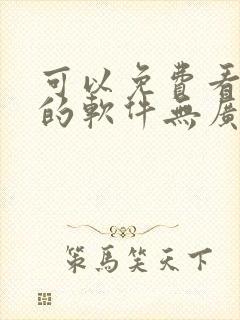 可以免費看
的軟件無廣
策馬笑天下